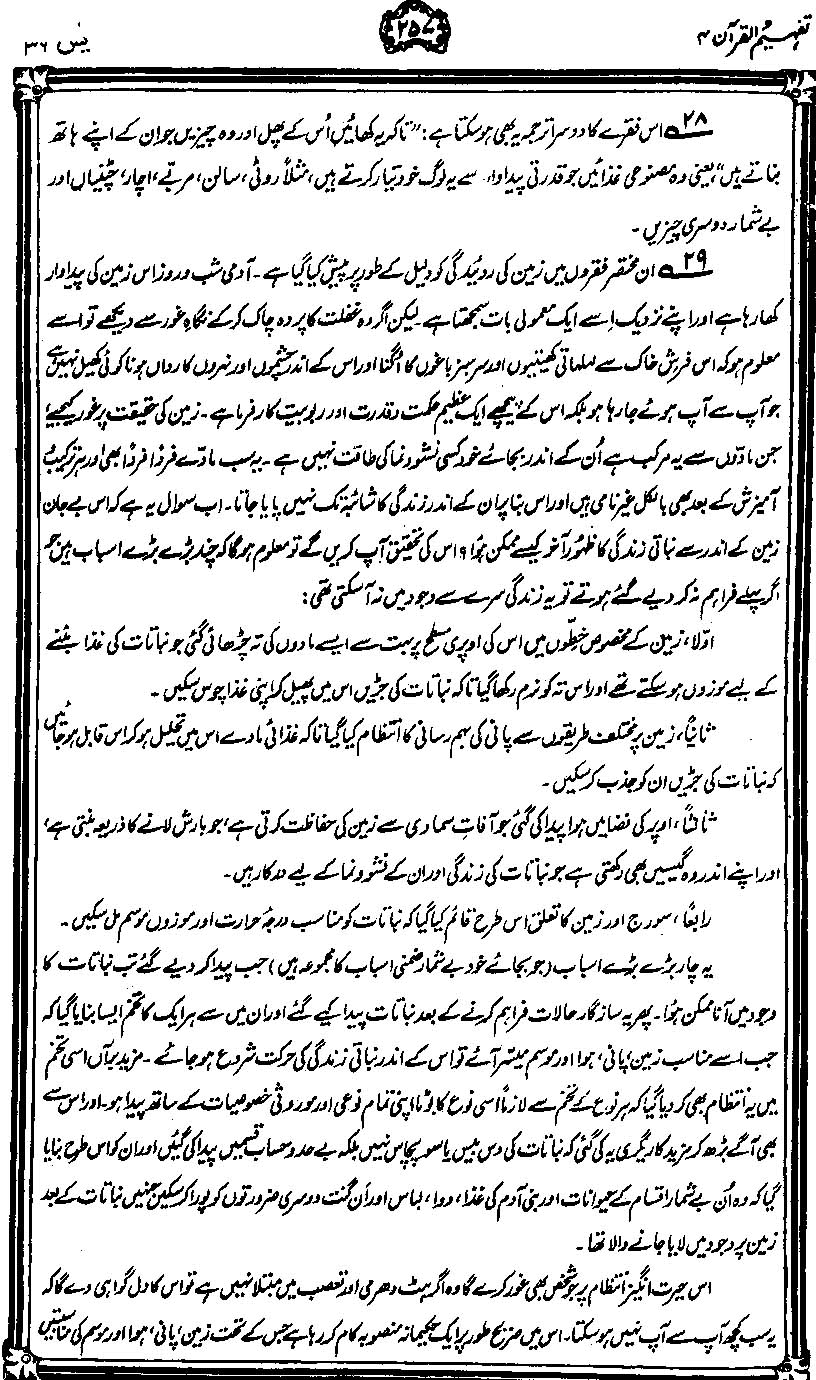 تفہیم القرآن ۴
۲۵۷
یٰس ۳۶
۲۸ اس فقرے کا دوسرا ترجمہ یہ بھی ہو سکتا ہے: "تاکہ یہ کھائیں اُس کے پھل اور وہ چیزیں جو ان کے اپنے ہاتھ
بناتے ہیں"، یعنی وہ مصنوعی غذائیں جو قدرتی پیداوار سے یہ لوگ خود تیار کرتے ہیں، مثلاً روٹی، سالن، مربّے، اچار، چٹنیاں اور
بے شمار دوسری چیزیں۔
۲۹ ان مختصر فقروں میں زمین کی روئیدگی کو دلیل کے طور پر پیش کیا گیا ہے۔ آدمی شب و روز اس زمین کی پیداوار
کھا رہا ہے اور اپنے نزدیک اِسے ایک معمولی بات سمجھتا ہے۔ لیکن اگر وہ غفلت کا پردہ چاک کر کے نگاہِ غور سے دیکھے تو اسے
معلوم ہو کہ اس فرشِ خاک سے لہلہاتی کھیتیوں اور سرسبز باغوں کا اُگنا اور اس کے اندر چشموں اور نہروں کا رواں ہونا کوئی کھیل نہیں ہے
جو آپ سے آپ ہوئے جا رہا ہو بلکہ اس کے پیچھے ایک عظیم حکمت و قدرت اور ربوبیت کارفرما ہے۔ زمین کی حقیقت پر غور کیجیے!
جن مادّوں سے یہ مرکب ہے اُن کے اندر بجائے خود کسی نشوونما کی طاقت نہیں ہے۔ یہ سب مادّے فرداً فرداً بھی اور ہر ترکیب و
آمیزش کے بعد بھی بالکل غیر نامی ہیں اور اس بنا پر ان کے اندر زندگی کا شائبہ تک نہیں پایا جاتا۔ اب سوال یہ ہے کہ اس بے جان
زمین کے اندر سے نباتی زندگی کا ظہور آخر کیسے ممکن ہوا؟ اس کی تحقیق آپ کریں گے تو معلوم ہوگا کہ چند بڑے بڑے اسباب ہیں جو
اگر پہلے فراہم نہ کر دیے گئے ہوتے تو یہ زندگی سرے سے وجود میں نہ آ سکتی تھی:
اوّلاً، زمین کے مخصوص خِطّوں میں اس کی اوپری سطح پر بہت سے ایسے مادوں کی تہ چڑھائی گئی جو نباتات کی غذا بننے
کے لیے موزوں ہو سکتے تھے اور اس تہ کو نرم رکھا گیا تاکہ نباتات کی جڑیں اس میں پھیل کر اپنی غذا چوس سکیں۔
ثانیاً، زمین پر مختلف طریقوں سے پانی کی بہم رسانی کا انتظام کیا گیا تاکہ غذائی مادے اس میں تحلیل ہو کر اس قابل ہو جائیں
کہ نباتات کی جڑیں ان کو جذب کر سکیں۔
ثالثاً، اوپر کی فضا میں ہوا پیدا کی گئی جو آفاتِ سماوی سے زمین کی حفاظت کرتی ہے، جو بارش لانے کا ذریعہ بنتی ہے،
اور اپنے اندر وہ گیسیں بھی رکھتی ہے جو نباتات کی زندگی اور ان کے نشوونما کے لیے درکار ہیں۔
رابعاً، سورج اور زمین کا تعلق اس طرح قائم کیا گیا کہ نباتات کو مناسب درجۂ حرارت اور موزوں موسم مل سکیں۔
یہ چار بڑے بڑے اسباب (جو بجائے خود بے شمار ضمنی اسباب کا مجموعہ ہیں) جب پیدا کر دیے گئے تب نباتات کا
وجود میں آنا ممکن ہوا۔ پھر یہ سازگار حالات فراہم کرنے کے بعد نباتات پیدا کیے گئے اور ان میں سے ہر ایک کا تخم ایسا بنایا گیا کہ
جب اسے مناسب زمین، پانی، ہوا اور موسم میسّر آئے تو اس کے اندر نباتی زندگی کی حرکت شروع ہو جائے۔ مزید برآں اسی تخم
میں یہ انتظام بھی کر دیا گیا کہ ہر نوع کے تخم سے لازماً اسی نوع کا بوٹا اپنی تمام نوعی اور موروثی خصوصیات کے ساتھ پیدا ہو۔ اور اس سے
بھی آگے بڑھ کر مزید کاریگری یہ کی گئی کہ نباتات کی دس بیس یا سو پچاس نہیں بلکہ بے حد و حساب قسمیں پیدا کی گئیں اور ان کو اس طرح بنایا
گیا کہ وہ اُن بے شمار اقسام کے حیوانات اور بنی آدم کی غذا، دوا، لباس اور اَن گنت دوسری ضرورتوں کو پورا کر سکیں جنہیں نباتات کے بعد
زمین پر وجود میں لایا جانے والا تھا۔
اس حیرت انگیز انتظام پر جو شخص بھی غور کرے گا وہ اگر ہٹ دھرمی اور تعصب میں مبتلا نہیں ہے تو اس کا دل گواہی دے گا کہ
یہ سب کچھ آپ سے آپ نہیں ہو سکتا۔ اس میں صریح طور پر ایک حکیمانہ منصوبہ کام کر رہا ہے جس کے تحت زمین، پانی، ہوا اور موسم کی مناسبتیں